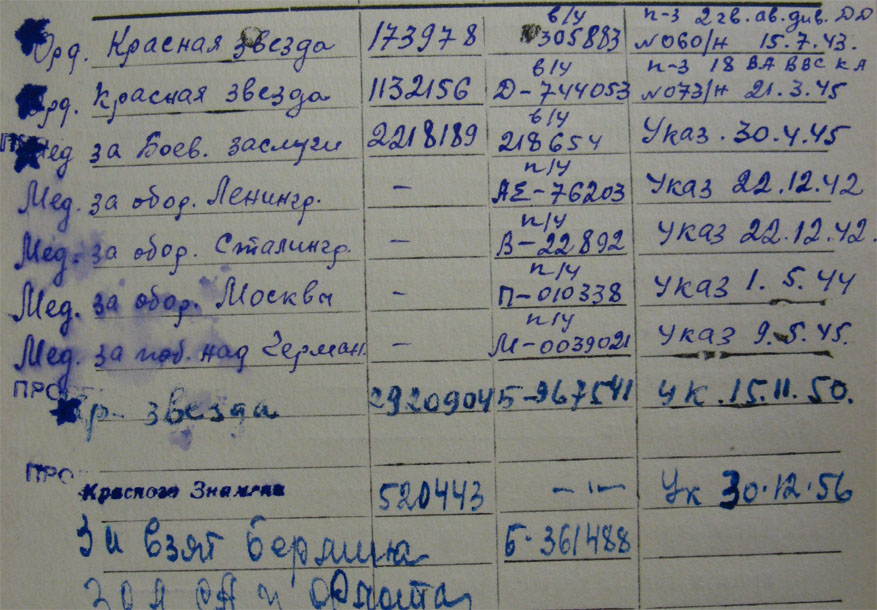 в/у п-з 2 гв. ав. див. ДД
Орд. Красная звезда 173978 305883 №060/н 15.7.43.
в/у п-з 18 ВА ВВС КА
Орд. Красная звезда 1132156 Д-744053 №073/н 21.3.45
в/у
Мед за Боев. заслуги 2218189 218654 Указ. 30.4.45
п/у
Мед. за обор. Ленингр. - АЕ-76203 Указ 22.12.42
п/у
Мед. за обор. Сталингр. - В-22892 Указ 22.12.42.
п/у
Мед. за обор. Москвы - П-010338 Указ 1.5.44
п/у
Мед. за поб. над Герман. - М-0039021 Указ 9.5.45.
ПРОВ
Кр. звезда 2920904 Б-967541 Ук. 15.11.50.
ПРО
Красного Знамени 520443 -"- Ук 30.12.56
За взят Берлина Б-361488